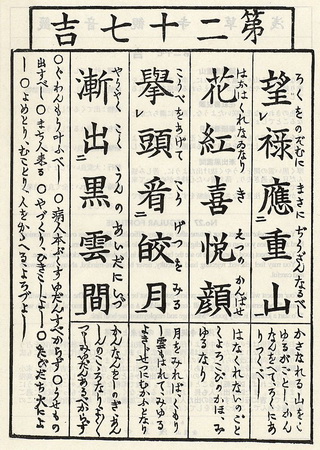 第二十七吉
望祿應重山
ろくをのぞむに まさにぢうざんなるべし
かさなれる山をこ
ゆるがごとし、かん
なんをへて、ろくにあ
りつくべし
花紅喜悅顔
はなくれなゐなり きえつのかんばせ
はなくれなゐのごと
くよろこびのかほ、み
ゆるなり
擧頭看皎月
こうべをあげて こうげつをみる
月をみれば、くもり
し雲もはれて、みゆる
よきじせつにむかふとなり
漸出黒雲間
やうやくこくうんのあいだにいづ
かんなんをしのぎ
○ぐわんもう叶ふべし ○病人本ぶくすゆだんすべからず ○うせもの
出すべし ○まち人来る ○やづくり、ひきこしよし ○たびだち大によ
し ○よめとり、むことり、人をかゝへるよろづよし